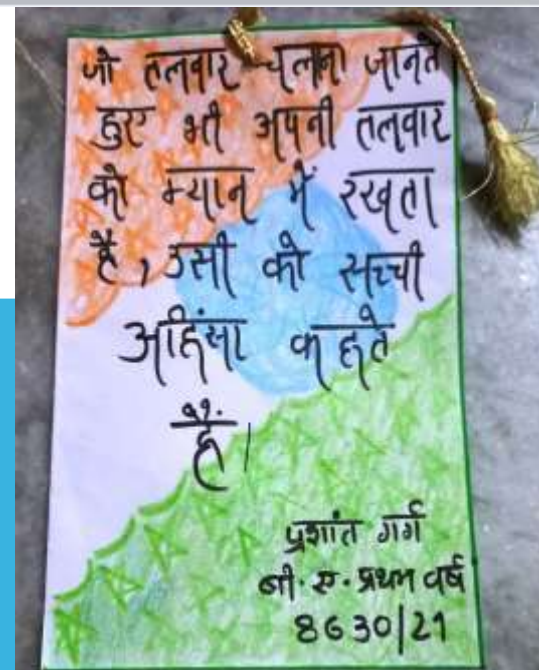 जो तलवार चलाना जानते
हुए भी अपनी तलवार
को म्यान में रखता
है, उसी को सच्ची
अहिंसा कहते
हैं।
प्रशांत गर्ग
बी. ए. प्रथम वर्ष
8630/21